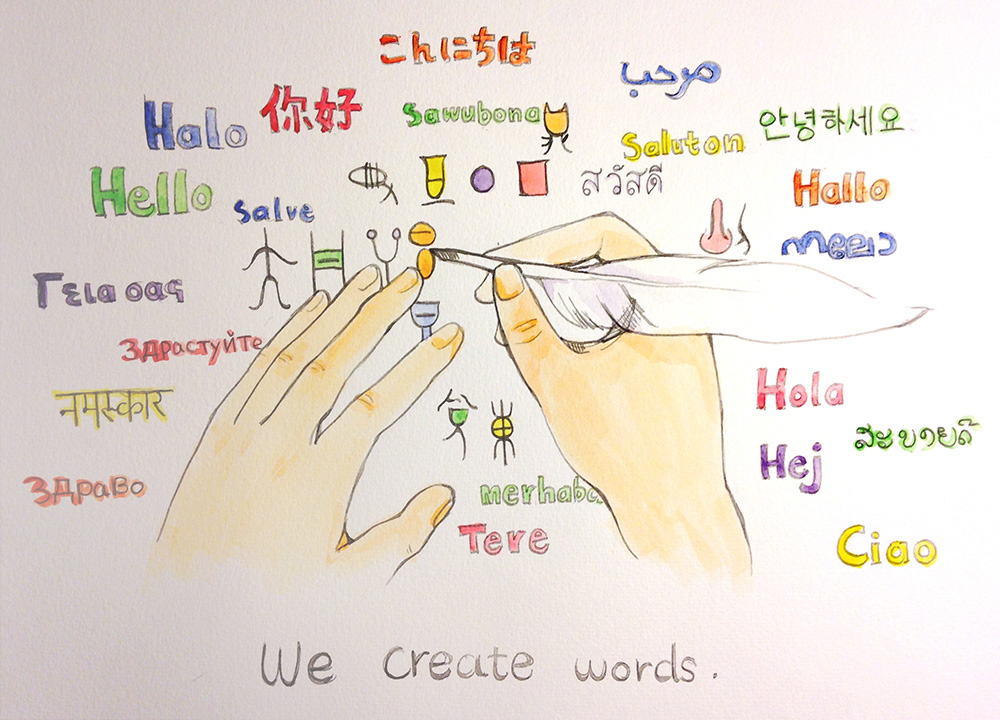 こんにちは
مرحب
Halo
你好
Sawubona
안녕하세요
Saluton
Hello
สวัสดี
Hallo
Salve
ഹലോ
Γεια σας
Здрастуйте
नमस्कार
Hola
ສະບາຍດີ
Hej
Здраво
merhaba
Tere
Ciao
We create words.